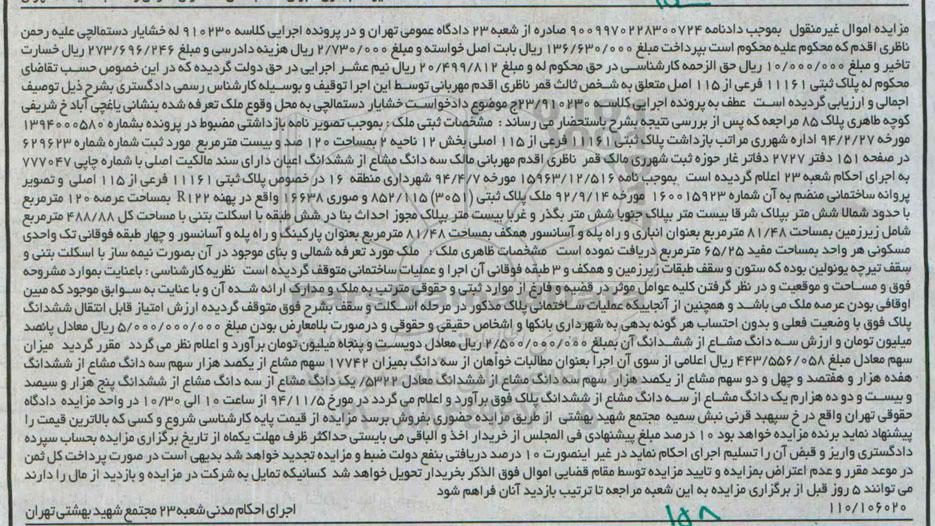 مزایده اموال غیرمنقول بموجب دادنامه ۹۰۰۹۹۷۰۲۲۸۳۰۰۷۲۴ صادره از شعبه ۲۳ دادگاه عمومی تهران و در پرونده اجرایی کلاسه ۹۱۰۲۳۰ له خشایار دستمالچی علیه رحمن
ناظری اقدم که محکوم علیه محکوم است بپرداخت مبلغ ۱۳۶/۶۳۰/۰۰۰ ریال بابت اصل خواسته و مبلغ ۲/۷۳۰/۰۰۰ ریال هزینه دادرسی و مبلغ ۲۷۳/۶۹۶/۲۴۶ ریال خسارت
تاخیر و مبلغ ۱۰/۰۰۰/۰۰۰ ریال حق الزحمه کارشناسی در حق محکوم له و مبلغ ۲۰/۴۹۹/۸۱۲ ریال نیم عشر اجرایی در حق دولت گردیده که در این خصوص حسب تقاضای
محکوم له پلاک ثبتی ۱۱۱۶۱ فرعی از ۱۱۵ اصل متعلق به شخص ثالث قمر ناظری اقدم مهربانی توسط این اجرا توقیف و بوسیله کارشناس رسمی دادگستری بشرح ذیل توصیف
اجمالی و ارزیابی گردیده است عطف به پرونده اجرایی کلاسه ۲۳/۹۱۰۲۳۰ج موضوع دادخواست خشایار دستمالچی به محل وقوع ملک تعرفه شده بنشانی یاغچی آباد خ شریفی
کوچه طاهری پلاک ۸۵ مراجعه که پس از بررسی نتیجه بشرح باستحضار می رساند : مشخصات ثبتی ملک : بموجب تصویر نامه بازداشتی مضبوط در پرونده بشماره ۱۳۹۴۰۰۰۵۸۰
مورخه ۹۴/۲/۲۷ اداره شهرری مراتب بازداشت پلاک ثبتی ۱۱۱۶۱ فرعی از ۱۱۵ اصلی بخش ۱۲ ناحیه ۲ بمساحت ۱۲۰ صد و بیست مترمربع مورد ثبت شماره شماره ۶۲۹۶۲۳
در صفحه ۱۵۱ دفتر ۲۷۲۷ دفاتر غار حوزه ثبت شهرری مالک قمر ناظری اقدم مهربانی مالک سه دانگ مشاع از ششدانگ اعیان دارای سند مالکیت اصلی با شماره چاپی ۷۷۷۰۴۷
به اجرای احکام شعبه ۲۳ اعلام گردیده است بموجب نامه ۱۵۹۶۳/۱۲/۵۱۶ مورخه ۹۴/۴/۷ شهرداری منطقه ۱۶ در خصوص پلاک ثبتی ۱۱۱۶۱ فرعی از ۱۱۵ اصلی و تصویر
پروانه ساختمانی منضم به آن شماره ۱۶۰۰۱۵۹۲۳ مورخه ۹۲/۹/۱۴ ملک پلاک ثبتی (۳۰۵۱) ۸۵۲/۱۱۵ و صوری ۱۶۶۳۸ واقع در پهنه R۱۲۲ بمساحت عرصه ۱۲۰ مترمربع
با حدود شمالا شش متر بپلاک شرقا بیست متر بپلاک جنوبا شش متر بگذر و غربا بیست متر بپلاک مجوز احداث بنا در شش طبقه با اسکلت بتنی با مساحت کل ۴۸۸/۸۸ مترمربع
شامل زیرزمین بمساحت ۸۱/۴۸ مترمربع بعنوان انباری و راه پله و آسانسور همکف بمساحت ۸۱/۴۸ مترمربع بعنوان پارکینگ و راه پله و آسانسور و چهار طبقه فوقانی تک واحدی
مسکونی هر واحد بمساحت مفید ۶۵/۲۵ مترمربع دریافت نموده است مشخصات ظاهری ملک : ملک مورد تعرفه شمالی و بنای موجود در آن بصورت نیمه ساز با اسکلت بتنی و
سقف تیرچه یونولین بوده که ستون و سقف طبقات زیرزمین و همکف و ۳ طبقه فوقانی آن اجرا و عملیات ساختمانی متوقف گردیده است نظریه کارشناسی : باعنایت بموارد مشروحه
فوق و مساحت و موقعیت و در نظر گرفتن کلیه عوامل موثر در قضیه و فارغ از موارد ثبتی و حقوقی مترتب به ملک و مدارک ارائه شده آن و با عنایت به سوابق موجود که مبین
اوقافی بودن عرصه ملک می باشد و همچنین از آنجاییکه عملیات ساختمانی پلاک مذکور در مرحله اسکلت و سقف بشرح فوق متوقف گردیده ارزش امتیاز قابل انتقال ششدانگ
پلاک فوق با وضعیت فعلی و بدون احتساب هر گونه بدهی به شهرداری بانکها و اشخاص حقیقی و حقوقی و درصورت بلامعارض بودن مبلغ ۵/۰۰۰/۰۰۰/۰۰۰ ریال معادل پانصد
میلیون تومان و ارزش سه دانگ مشاع از ششدانگ آن بمبلغ ۲/۵۰۰/۰۰۰/۰۰۰ ریال معادل دویست و پنجاه میلیون تومان برآورد و اعلام نظر می گردد مقرر گردید میزان
سهم معادل مبلغ ۴۴۳/۵۵۶/۰۵۸ ریال اعلامی از سوی آن اجرا بعنوان مطالبات خواهان از سه دانگ بمیزان ۱۷۷۴۲ سهم مشاع از یکصد هزار سهم سه دانگ مشاع از ششدانگ
هفده هزار و هفتصد و چهل و دو سهم مشاع از یکصد هزار سهم سه دانگ مشاع از ششدانگ معادل ۵۳۲۲/. یک دانگ مشاع از سه دانگ مشاع از ششدانگ پنج هزار و سیصد
و بیست و دو ده هزارم یک دانگ مشاع از سه دانگ مشاع از ششدانگ پلاک فوق برآورد و اعلام می گردد در مورخ ۹۴/۱۱/۵ از ساعت ۱۰ الی ۱۰/۳۰ در واحد مزایده دادگاه
حقوقی تهران واقع در خ سپهبد قرنی نبش سمیه مجتمع شهید بهشتی از طریق مزایده حضوری بفروش برسد مزایده از قیمت پایه کارشناسی شروع و کسی که بالاترین قیمت را
پیشنهاد نماید برنده مزایده خواهد بود ۱۰ درصد مبلغ پیشنهادی فی المجلس از خریدار اخذ و الباقی می بایستی حداکثر ظرف مهلت یکماه از تاریخ برگزاری مزایده بحساب سپرده
دادگستری واریز و قبض آن را تسلیم اجرای احکام نماید در غیر اینصورت ۱۰ درصد دریافتی بنفع دولت ضبط و مزایده تجدید خواهد شد بدیهی است در صورت پرداخت کل ثمن
در موعد مقرر و عدم اعتراض بمزایده و تایید مزایده توسط مقام قضایی اموال فوق الذکر بخریدار تحویل خواهد شد کسانیکه تمایل به شرکت در مزایده و بازدید از مال را دارند
می توانند ۵ روز قبل از برگزاری مزایده به این شعبه مراجعه تا ترتیب بازدید آنان فراهم شود
۱۱۰/۱۰۶۰۲۰ اجرای احکام مدنی شعبه ۲۳ مجتمع شهید بهشتی تهران